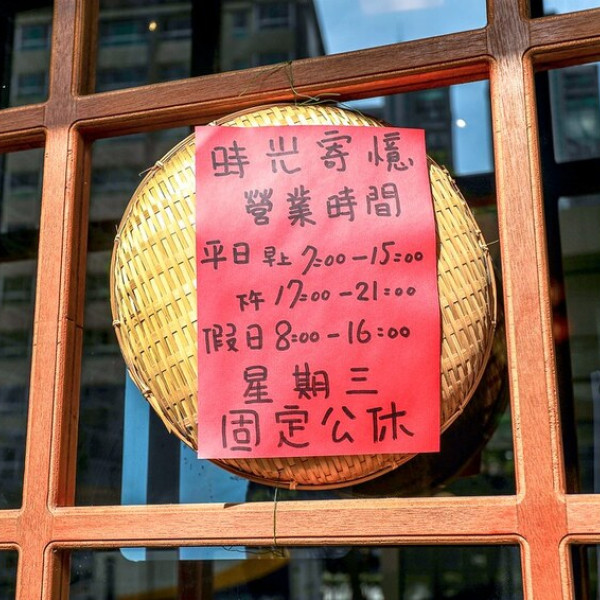 時光寄憶
營業時間
平日早上 7:00-15:00
下午 17:00-21:00
假日 8:00-16:00
星期三
固定公休